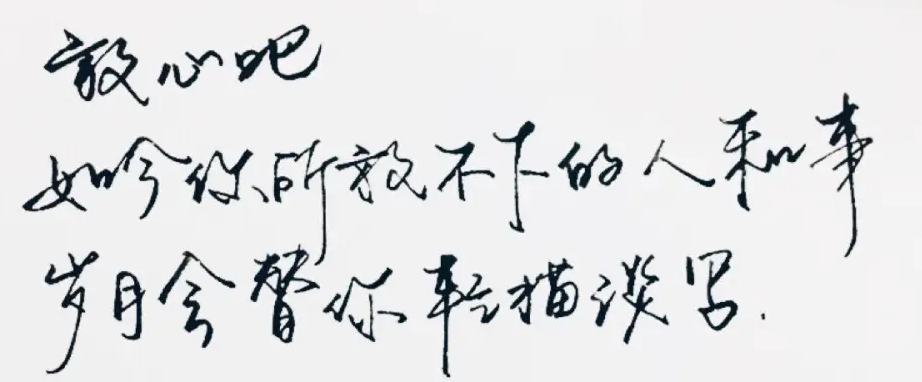 放心吧
如今你所放不下的人和事
岁月会替你轻描淡写.